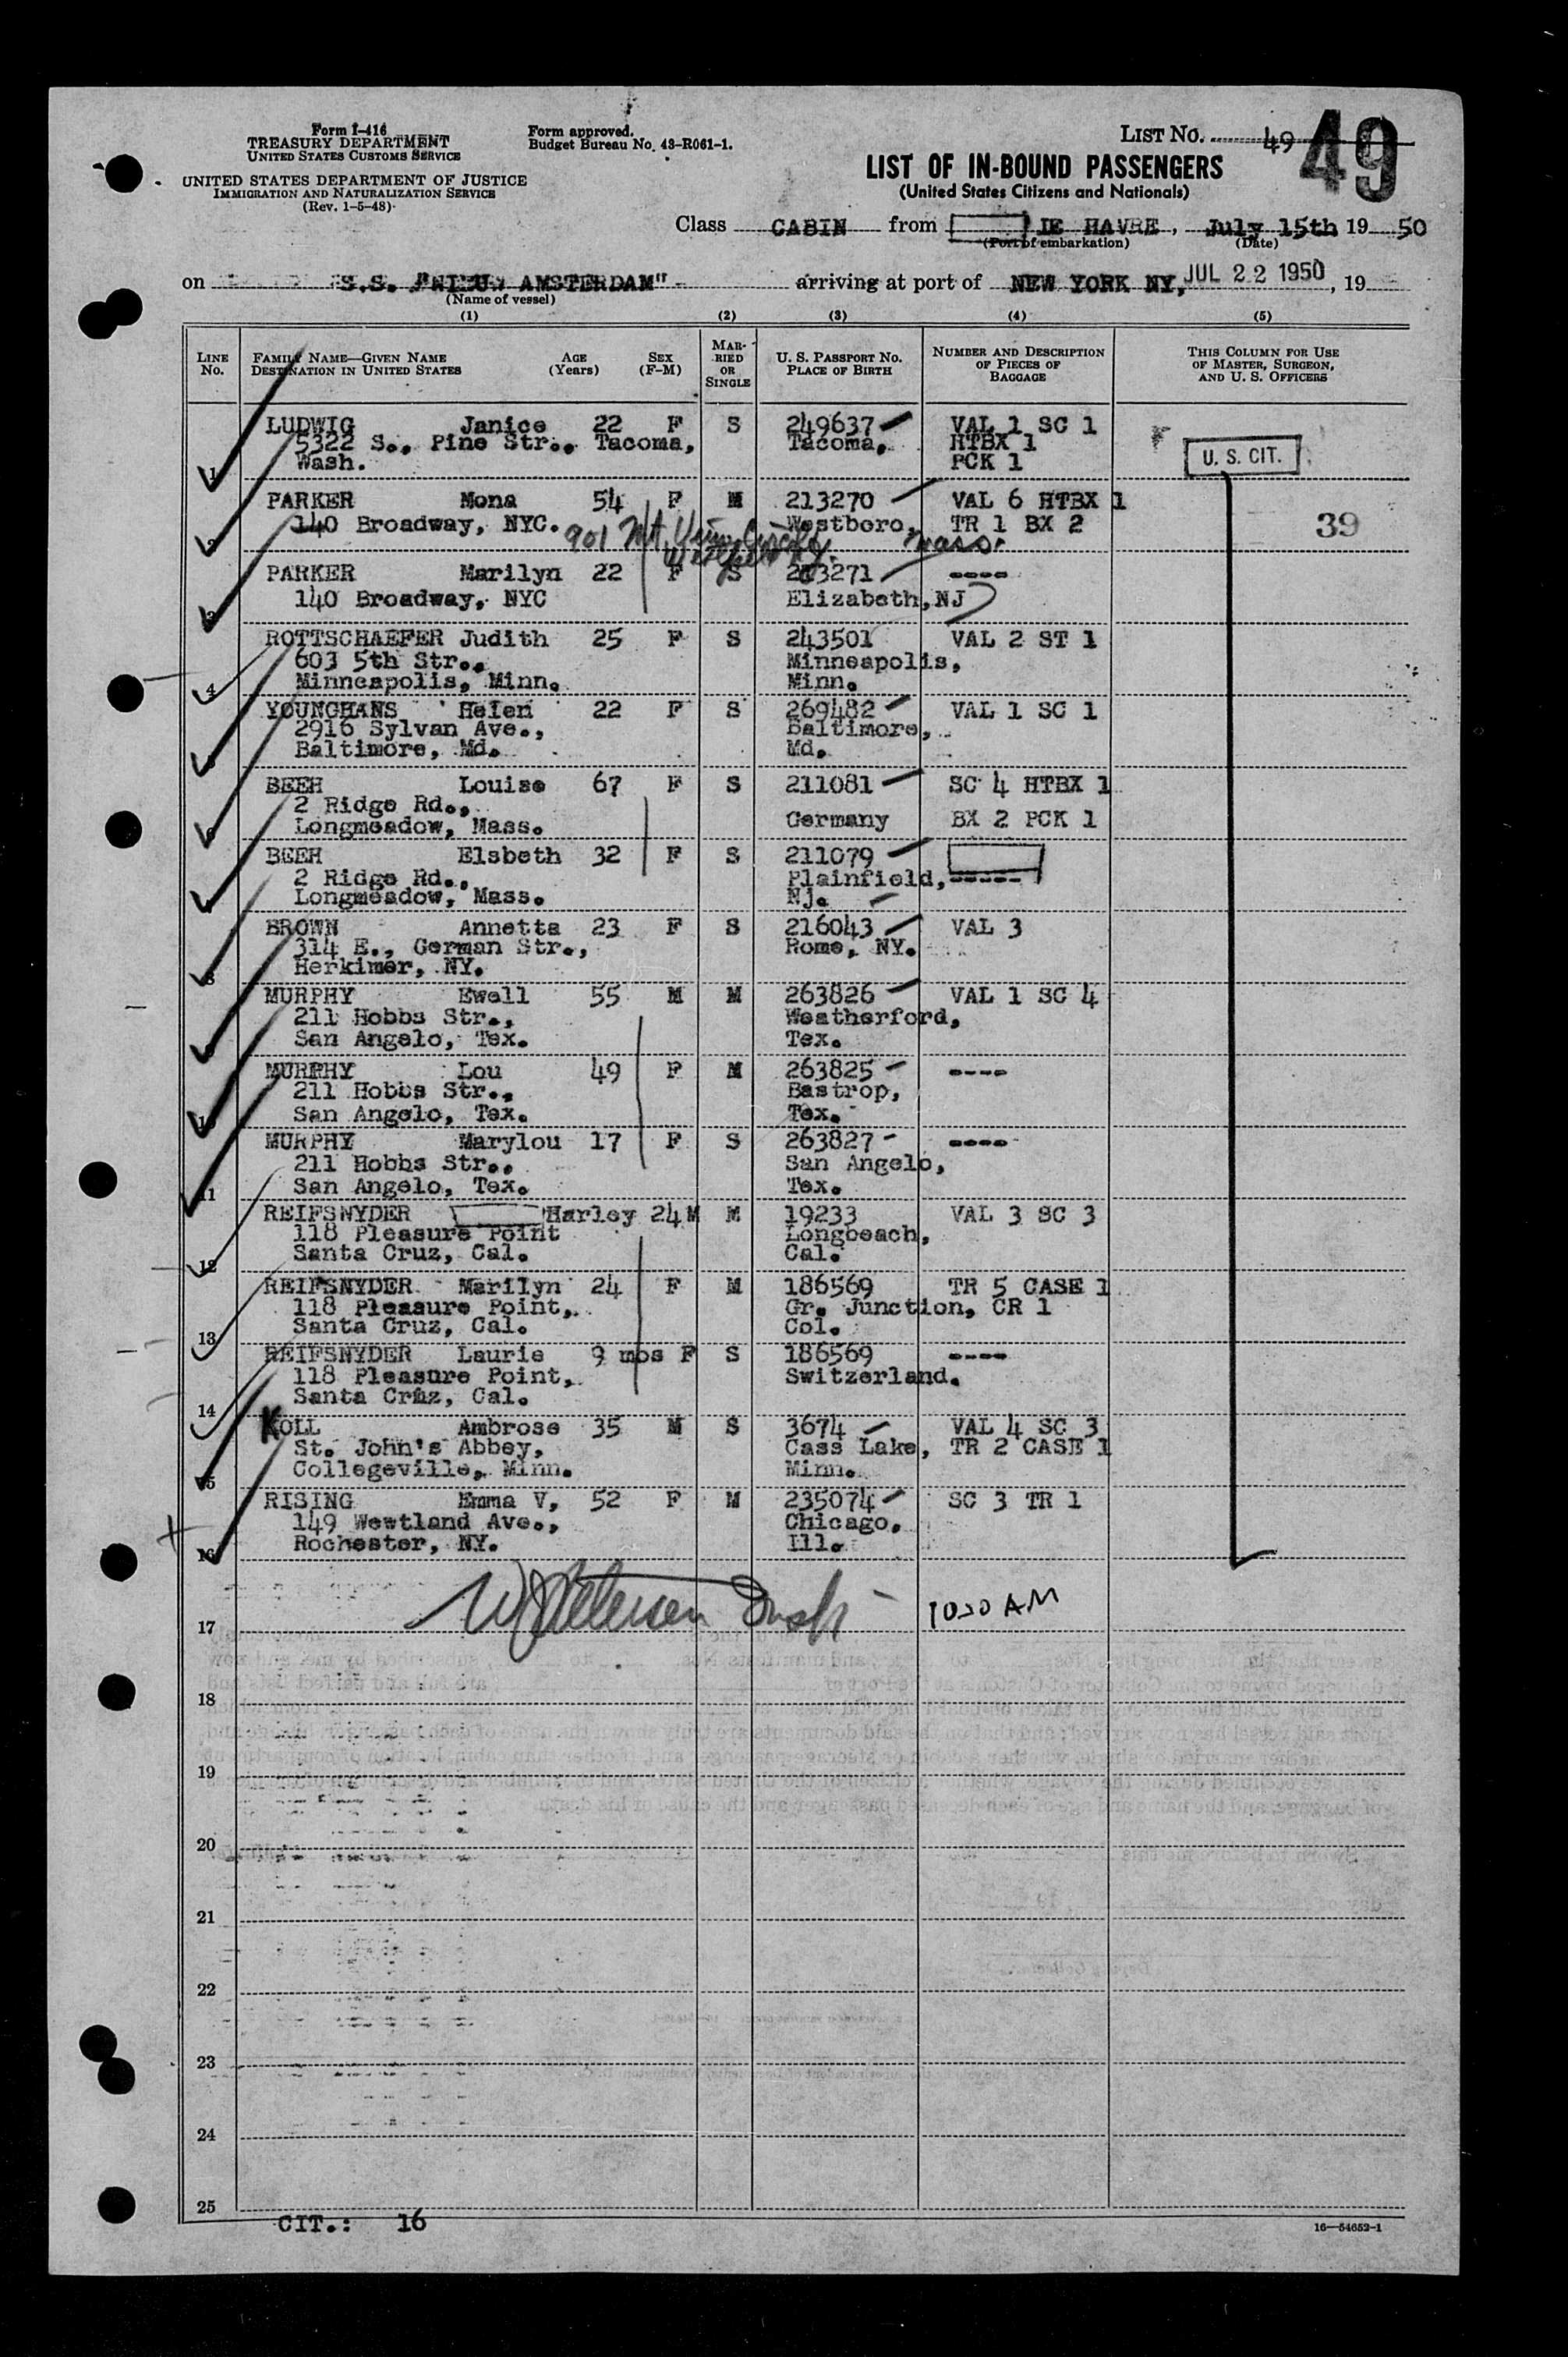 Form I-416
TREASURY DEPARTMENT
UNITED STATES CUSTOMS SERVICE
UNITED STATES DEPARTMENT OF JUSTICE
IMMIGRATION AND NATURALIZATION SERVICE
(Rev. 1-5-48)
Form approved.
Budget Bureau No. 43-R061-1.
LIST NO. 49 49
LIST OF IN-BOUND PASSENGERS
(United States Citizens and Nationals)
Class CABIN from LE HAVRE, July 15th 1950
(Port of embarkation) (Date)
on S.S. "NIEUW AMSTERDAM" arriving at port of NEW YORK NY, JUL 22 1950, 19
(Name of vessel)
(1) (2) (3) (4) (5)
LINE NO. FAMILY NAME—GIVEN NAME DESTINATION IN UNITED STATES AGE (Years) SEX (F-M) MARRIED OR SINGLE U. S. PASSPORT NO. PLACE OF BIRTH NUMBER AND DESCRIPTION OF PIECES OF BAGGAGE THIS COLUMN FOR USE OF MASTER, SURGEON, AND U. S. OFFICERS
LUDWIG Janice 22 F S 249637 VAL 1 SC 1
5322 S., Pine Str., Tacoma, Tacoma, HTBX 1
1 Wash. PCK 1
U. S. CIT.
PARKER Mona 54 F M 213270 VAL 6 HTBX 1
140 Broadway, NYC. Westboro, TR 1 BX 2
2 901 Mt. View Circle Mass.
39
PARKER Marilyn 22 F S 213271 ----
3 140 Broadway, NYC Elizabeth, NJ
ROTTSCHAEFER Judith 25 F S 243501 VAL 2 ST 1
603 5th Str., Minneapolis,
4 Minneapolis, Minn. Minn.
YOUNGHANS Helen 22 F S 269482 VAL 1 SC 1
2916 Sylvan Ave., Baltimore,
Baltimore, Md. Md.
BEEH Louise 67 F S 211081 SC 4 HTBX 1
2 Ridge Rd.,
6 Longmeadow, Mass. Germany BX 2 PCK 1
BEEH Elsbeth 32 F S 211079
2 Ridge Rd., Plainfield, -----
Longmeadow, Mass. NJ.
BROWN Annetta 23 F S 216043 VAL 3
314 E., German Str., Rome, NY.
8 Herkimer, NY.
MURPHY Ewell 55 M M 263826 VAL 1 SC 4
211 Hobbs Str., Weatherford,
9 San Angelo, Tex. Tex.
MURPHY Lou 49 F M 263825 ----
211 Hobbs Str., Bastrop,
10 San Angelo, Tex. Tex.
MURPHY Marylou 17 F S 263827 ----
211 Hobbs Str., San Angelo,
11 San Angelo, Tex. Tex.
REIFSNYDER Harley 24 M M 19233 VAL 3 SC 3
118 Pleasure Point Longbeach,
12 Santa Cruz, Cal. Cal.
REIFSNYDER Marilyn 24 F M 186569 TR 5 CASE 1
118 Pleasure Point, Gr. Junction, CR 1
13 Santa Cruz, Cal. Col.
REIFSNYDER Laurie 9 mos F S 186569 ----
118 Pleasure Point, Switzerland.
14 Santa Cruz, Cal.
KOLL Ambrose 35 M S 3674 VAL 4 SC 3
St. John's Abbey, Cass Lake, TR 2 CASE 1
15 Collegeville, Minn. Minn.
RISING Emma V, 52 F M 235074 SC 3 TR 1
149 Wewtland Ave., Chicago,
16 Rochester, NY. Ill.
17 1020 AM
18
19
20
21
22
23
24
25
CIT.: 16
16—54652-1